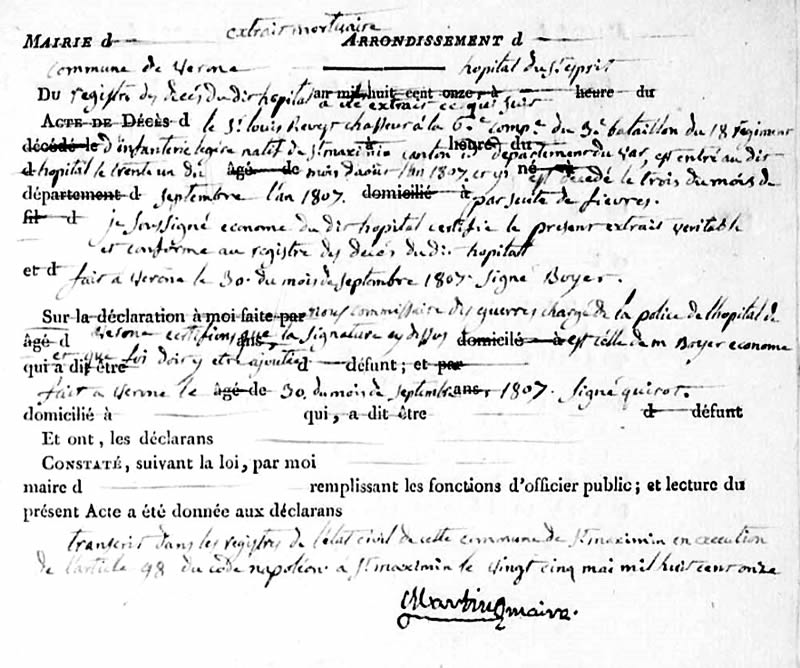 extrait mortuaire
MAIRIE d ARRONDISSEMENT d
Commune de Verone hopital du St esprit
Du registre des deces du dit hopital an mil huit cent onze, à heure du
a été extrait ce qui suit
ACTE DE DÉCÈS d le Sr louis Revest chasseur à la 6e compe du 3e bataillon du 18 regiment
décédé le d'infanterie legere natif de St maximin canton id à heures du departement du var, est entré au dit
d hopital le trente un du âgé de mois d'aout l'an 1807. et y né est decedé le trois du mois de
département d septembre l'an 1807. domicilié à par suite de fievres.
fil d je soussigné econome du dit hopital certifie le present extrait veritable
et conforme au registre des deces du dit hopital
et d fait a Verone le 30. du mois de septembre 1807. signé Boyer.
Sur la déclaration à moi faite par nous commissaire des guerres chargé de la police de l'hopital de
âgé d Verone certifions que ans, la signature cy dessus domicilé à est celle de m Boyer econome
et que foi doit y etre ajoutée
qui a dit être d défunt ; et par
fait a Verone le âgé de 30. du mois de septembre ans, 1807. signé quirot.
domicilié à qui, a dit être d défunt
Et ont, les déclarans
CONSTATÉ, suivant la loi, par moi
maire d remplissant les fonctions d'officier public ; et lecture du
présent Acte a été donnée aux déclarans
transcrit dans les registres de l'état civil de cette commune de St maximin en execution
de l'article 98 du code napoléon. à St maximin le vingt cinq mai mil huit cent onze
Martin maire.